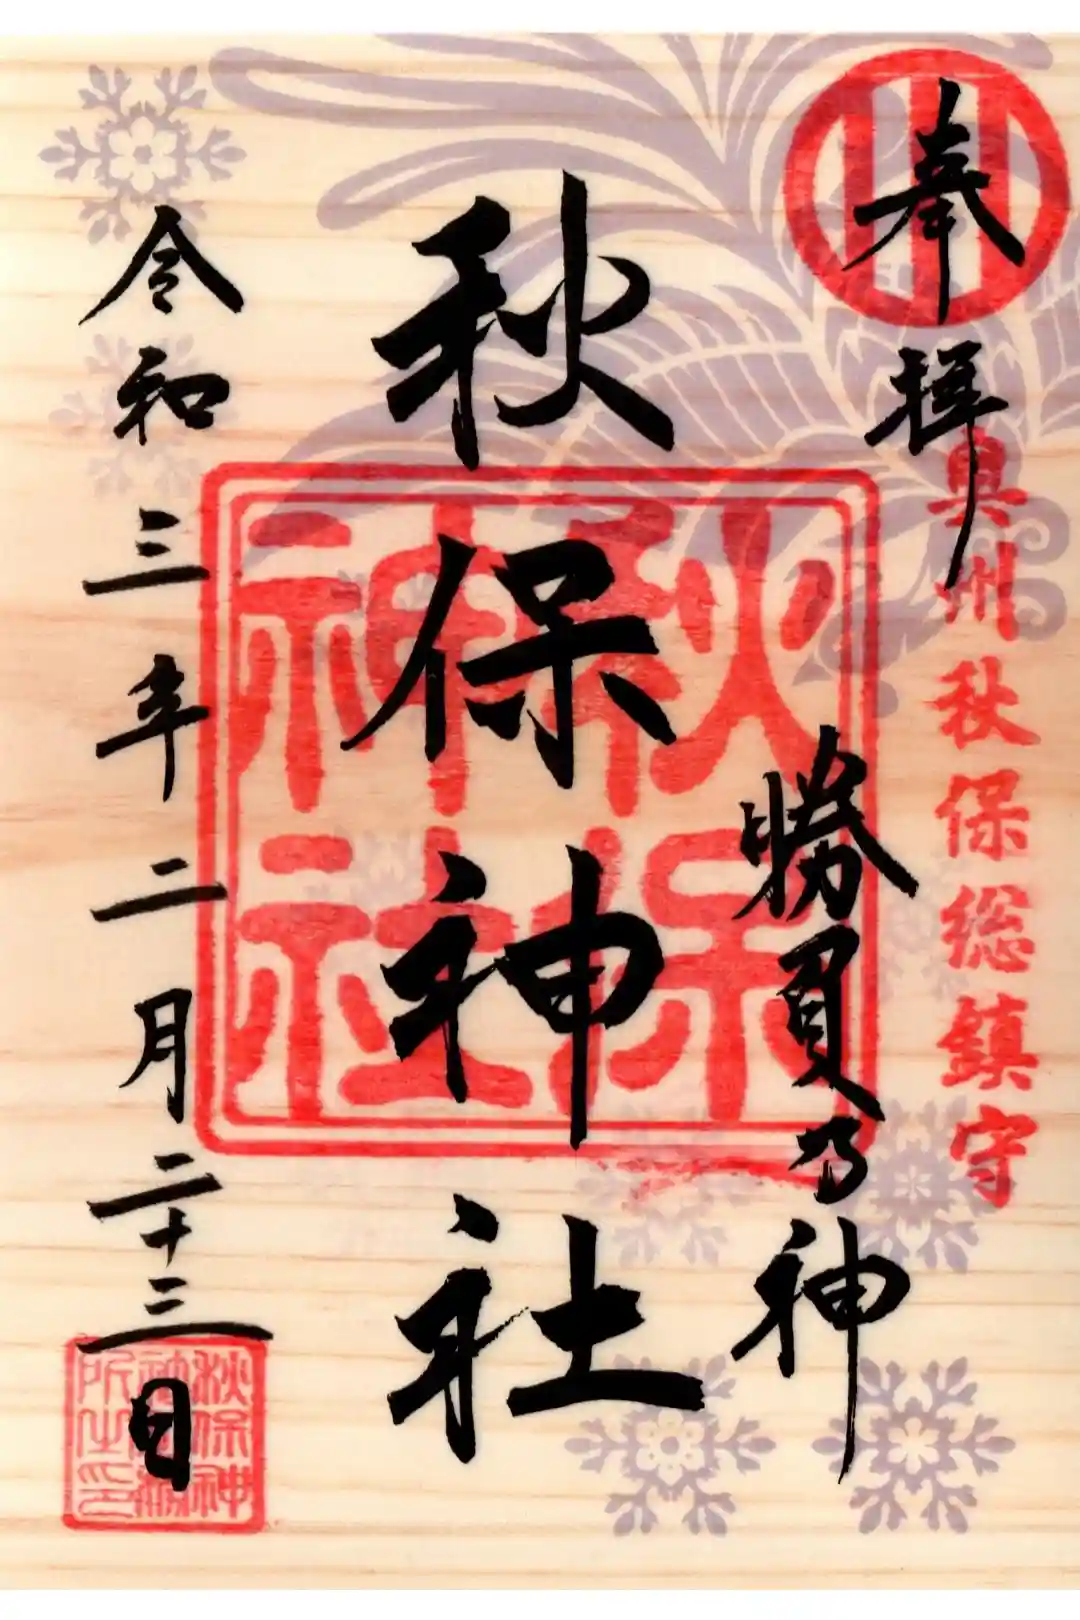 奉拝
奥州秋保総鎮守
勝負乃神
秋保神社
秋保
神社
令和三年二月二十三日
秋保神
社
所之印